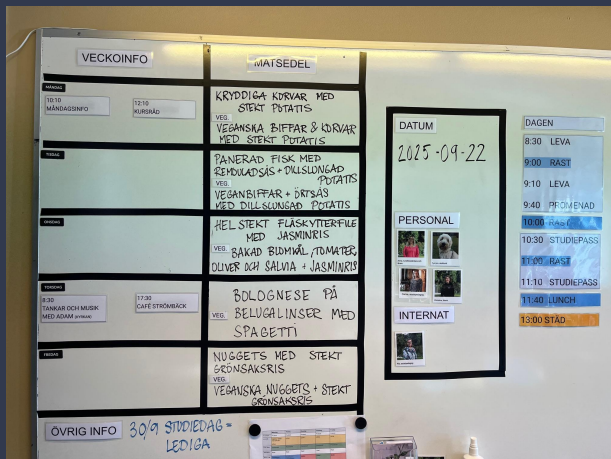 VECKOINFO
MATSEDEL
MÅNDAG
10:10
MÅNDAGSINFO
12:10
KURSRÅD
KRYDDIGA KORVAR MED
STEKT POTATIS
VEG.
VEGANSKA BIFFAR & KORVAR
MED STEKT POTATIS
TISDAG
PANERAD FISK MED
REMOULADSÅS + DILLSLUNGAD
POTATIS
VEG.
VEGANBIFFAR + ÖRTSÅS
MED DILLSLUNGAD POTATIS
ONSDAG
HELSTEKT FLÄSKYTTERFILÉ
MED JASMINRIS
VEG.
BAKAD BLOMKÅL, TOMATER,
OLIVER OCH SALVIA + JASMINRIS
TORSDAG
9:30
TANKAR OCH MUSIK
MED ADAM
17:30
CAFÉ STRÖMBÄCK
BOLOGNESE PÅ
VEG.
BELUGALINSER MED
SPAGETTI
FREDAG
NUGGETS MED STEKT
GRÖNSAKSRIS
VEG.
VEGANSKA NUGGETS + STEKT
GRÖNSAKSRIS
ÖVRIG INFO
30/9 STUDIEDAG =
LEDIGA
DATUM
2025-09-22
PERSONAL
INTERNAT
DAGEN
8:30 LEVA
9:00 RAST
9:10 LEVA
9:40 PROMENAD
10:00 RAST
10:30 STUDIEPASS
11:00 RAST
11:10 STUDIEPASS
11:40 LUNCH
13:00 STÄD